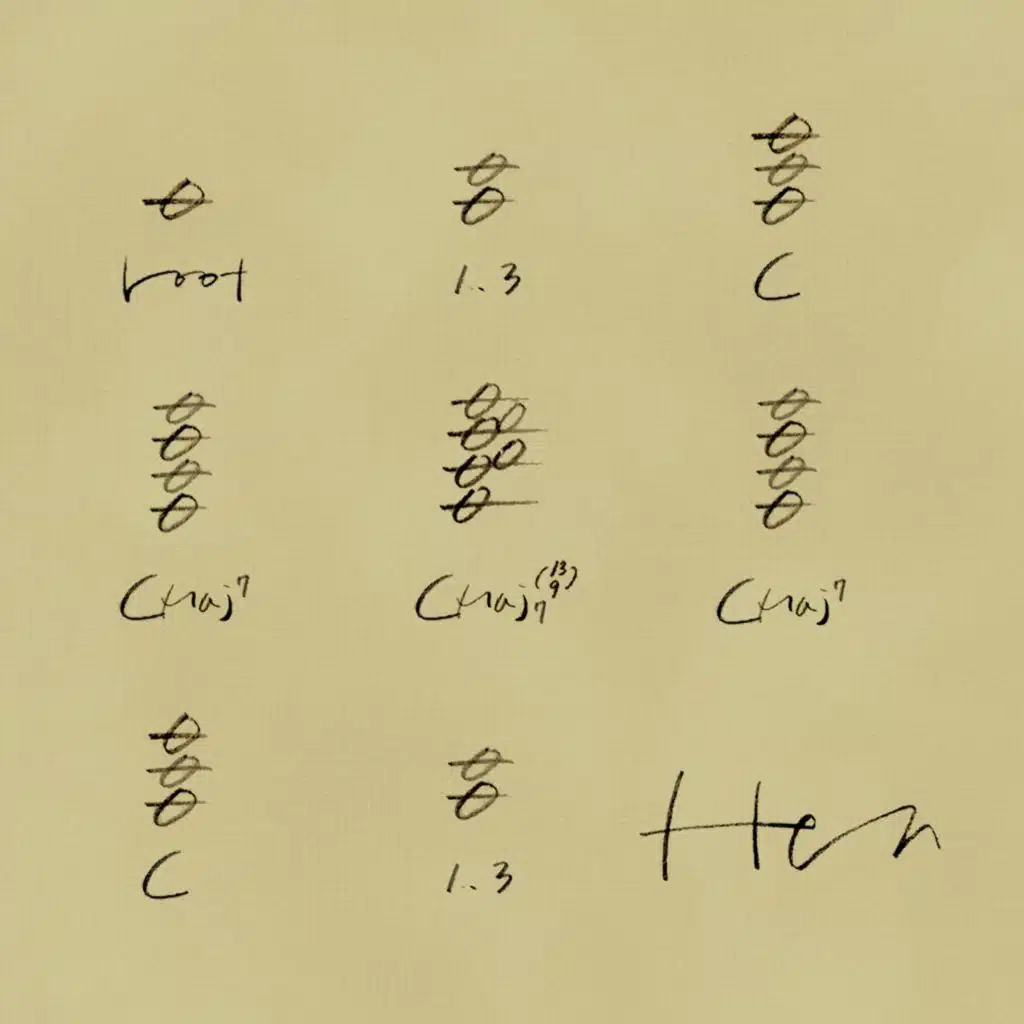 root
1.3
C
Cmaj7
Cmaj7(13 9)
Cmaj7
C
1.3
Hen